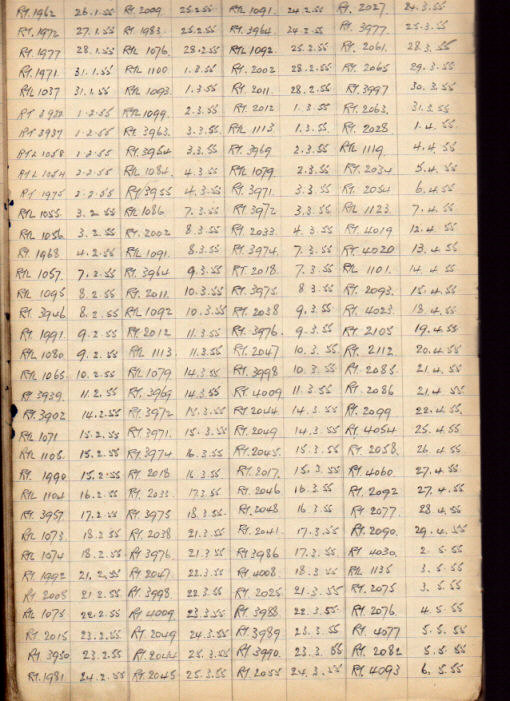 RT. 1962 26.1.55 RT. 2009 25.2.55 RTL 1091. 24.2.55 RT. 2027 24.3.55
RT. 1972 27.1.55 RT. 1983. 25.2.55 RT. 3964 24.2.55 RT. 3977. 25.3.55
RT. 1977 28.1.55 RTL 1076. 28.2.55 RTL 1092. 25.2.55 RT. 2061. 28.3.55
RT. 1971. 31.1.55 RTL 1100 1.3.55 RT. 2002 28.2.55 RT. 2065 29.3.55
RTL 1037 31.1.55 RTL 1093. 1.3.55 RT. 2011. 28.2.55 RT. 3997 30.3.55
1.2.55 RTL 1099. 2.3.55 RT. 2012 1.3.55 RT. 2063. 31.3.55
RT 3937 1.2.55 RT. 3963. 3.3.55 RTL 1113 1.3.55 RT. 2028 1.4.55
RTL 1058 1.2.55 RT. 3954 3.3.55 RT. 3969 2.3.55 RTL 1119. 4.4.55
RTL 1054 2.2.55 RTL 1084. 4.3.55 RTL 1079 2.3.55 RT. 2034 5.4.55
RT 1975 2.2.55 RT 3955 4.3.55 RT. 3971. 3.3.55 RT. 2054 6.4.55
RTL 1055 3.2.55 RTL 1086 7.3.55 RT. 3972 3.3.55 RTL 1123. 7.4.55
RTL 1056 3.2.55 RT. 2002 8.3.55 RT. 2033. 4.3.55 RT. 4019 12.4.55
RT. 1968 4.2.55 RTL 1091. 8.3.55 RT. 3974. 7.3.55 RT 4020 13.4.55
RTL 1057. 7.2.55 RT. 3964 9.3.55 RT. 2018. 7.3.55 RTL 1101. 14.4.55
RTL 1095 8.2.55 RT. 2011. 10.3.55 RT. 3975 8.3.55 RT. 2093. 15.4.55
RT. 3946 8.2.55 RTL 1092 10.3.55 RT. 2038 9.3.55 RT. 4023. 18.4.55
RT. 1991 9.2.55 RT. 2012 11.3.55 RT. 3976. 9.3.55 RT. 2105 19.4.55
RTL 1080 9.2.55 RTL 1113 11.3.55 RT. 2047 10.3.55 RT. 2112 20.4.55
RTL 1065. 10.2.55 RTL 1079 14.3.55 RT. 3998 10.3.55 RT. 2085. 21.4.55
RT. 3939. 11.2.55 RT. 3969 14.3.55 RT. 4009 11.3.55 RT. 2086 21.4.55
RT. 3902 14.2.55 RT. 3972 15.3.55 RT. 2044 14.3.55 RT. 2099 22.4.55
RTL 1071 15.2.55 RT. 3971. 15.3.55 RT. 2049 14.3.55 RT. 4054 25.4.55
RTL 1105. 15.2.55 RT. 3974 16.3.55 RT. 2045. 15.3.55 RT. 2058. 26.4.55
RT. 1990 15.2.55 RT. 2018 16.3.55 RT. 2017. 15.3.55 RT. 4060 27.4.55
RTL 1104 16.2.55 RT. 17.3.55 RT. 2046 16.3.55 RT. 2092 27.4.55
RT. 3957 17.2.55 RT. 3975 18.3.55 RT. 2048 16.3.55 RT. 2077 28.4.55
RTL 1073 18.2.55 RT. 2038 21.3.55 RT. 2041. 17.3.55 RT. 2090. 29.4.55
RTL 1074 18.2.55 RT. 3976. 21.3.55 RT 3986 17.3.55 RT. 4030. 2.5.55
RT. 1992 21.2.55 RT. 2047 22.3.55 RT. 4008. 18.3.55 RTL 1135 3.5.55
RT. 2008 21.2.55 RT. 3998 22.3.55 RT. 2025 21.3.55 RT. 2075 3.5.55
RTL 1075 22.2.55 RT. 4009 23.3.55 RT. 3988. 22.3.55 RT. 2076 4.5.55
RT. 2015 23.2.55 RT. 2049 24.3.55 RT. 3989 23.3.55 RT. 4077 5.5.55
RT. 3950 23.2.55 RT. 2044 25.3.55 RT. 3990. 23.3.55 RT. 2082 5.5.55
RT. 1981 24.2.55 RT. 2045 25.3.55 RT. 2055 24.3.55 RT. 4093 6.5.55